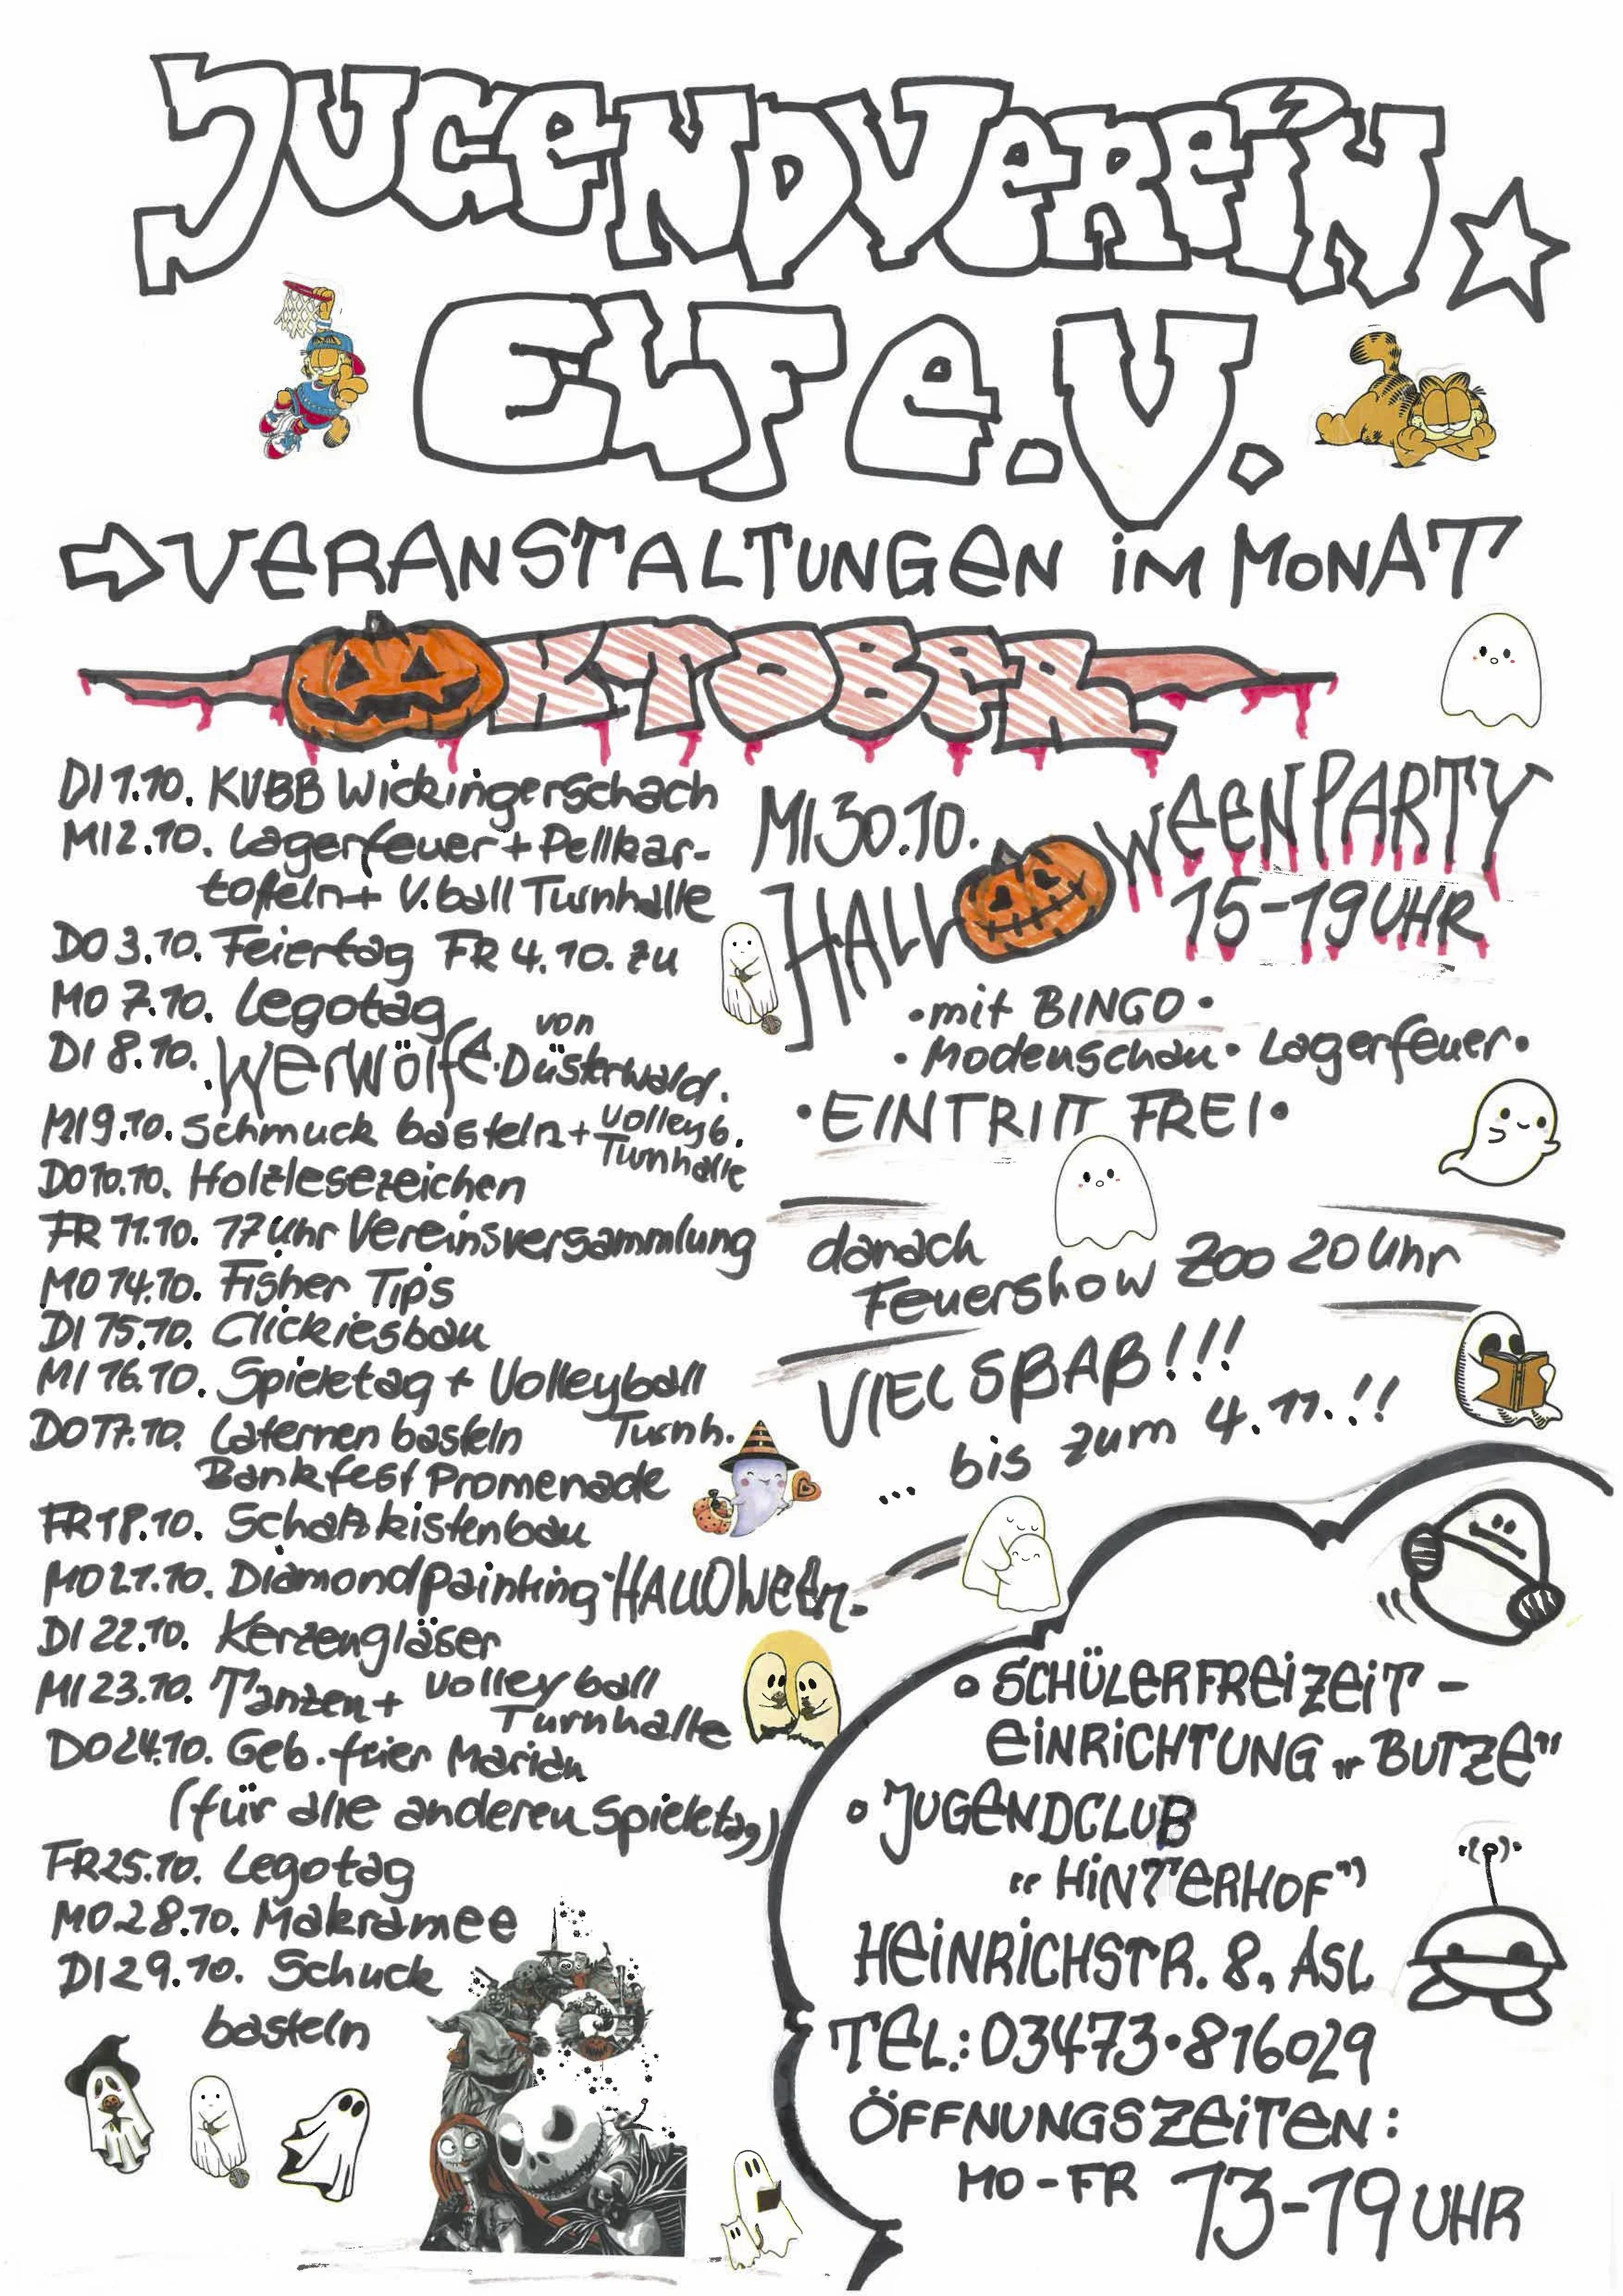 JUGENDVEREIN
ELF e.V.
VERANSTALTUNGEN IM MONAT
OKTOBER
DI 1.10. KUBB Wickingerschach
MI 2.10. Lagerfeuer + Pellkar-
tofeln + V.ball Turnhalle
DO 3.10. Feiertag FR 4.10. zu
MO 7.10. Legotag
DI 8.10. Werwölfe von Düsterwald.
MI 9.10. Schmuck basteln + Volleyb. Turnhalle
DO 10.10. Holzlesezeichen
FR 11.10. 17 Uhr Vereinsversammlung
MO 14.10. Fisher Tips
DI 15.10. Clickiesbau
MI 16.10. Spieletag + Volleyball Turnh.
DO 17.10. Laternen basteln
Bankfest Promenade
FR 18.10. Schatzkistenbau
MO 21.10. Diamondpainting HALLOWeen
DI 22.10. Kerzengläser
MI 23.10. Tanzen + Volleyball Turnhalle
DO 24.10. Geb. feier Marian
(für alle anderen Spieletag)
FR 25.10. Legotag
MO 28.10. Makramee
DI 29.10. Schuck
basteln
MI 30.10.
HALLOWEENPARTY
15-19 UHR
• mit BINGO •
• Modenschau • Lagerfeuer •
• EINTRITT FREI •
danach
Feuershow Zoo 20 Uhr
VIEL SPAß!!!
... bis zum 4.11.!!
° SCHÜLERFREIZEIT -
EINRICHTUNG „BUTZE"
° JUGENDCLUB
"HINTERHOF"
HEINRICHSTR. 8, ASL
TEL.: 03473 • 816029
ÖFFNUNGSZEITEN:
MO - FR 13-19 UHR